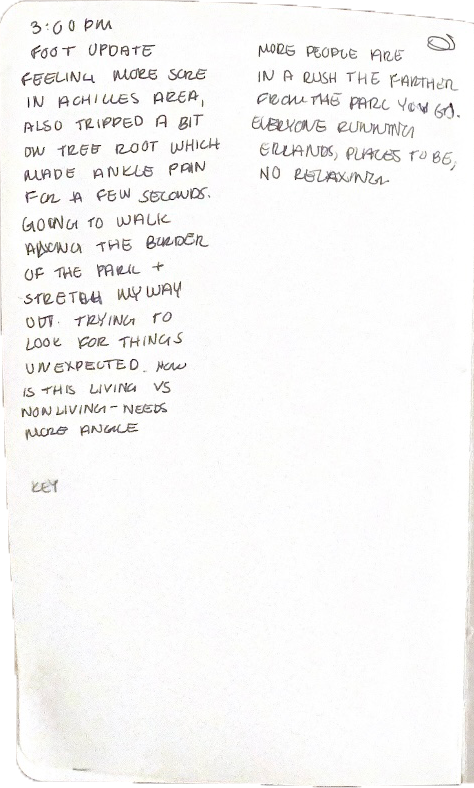 3:00 PM
FOOT UPDATE
FEELING MORE SORE
IN ACHILLES AREA,
ALSO TRIPPED A BIT
ON TREE ROOT WHICH
MADE ANKLE PAIN
FOR A FEW SECONDS.
GOING TO WALK
ALONG THE BORDER
OF THE PARK +
STRETCH MY WAY
OUT. TRYING TO
LOOK FOR THINGS
UNEXPECTED. HOW
IS THIS LIVING VS
NONLIVING - NEEDS
MORE ANGLE
KEY
MORE PEOPLE ARE
IN A RUSH THE FARTHER
FROM THE PARK YOU GO.
EVERYONE RUNNING
ERRANDS, PLACES TO BE,
NO RELAXING